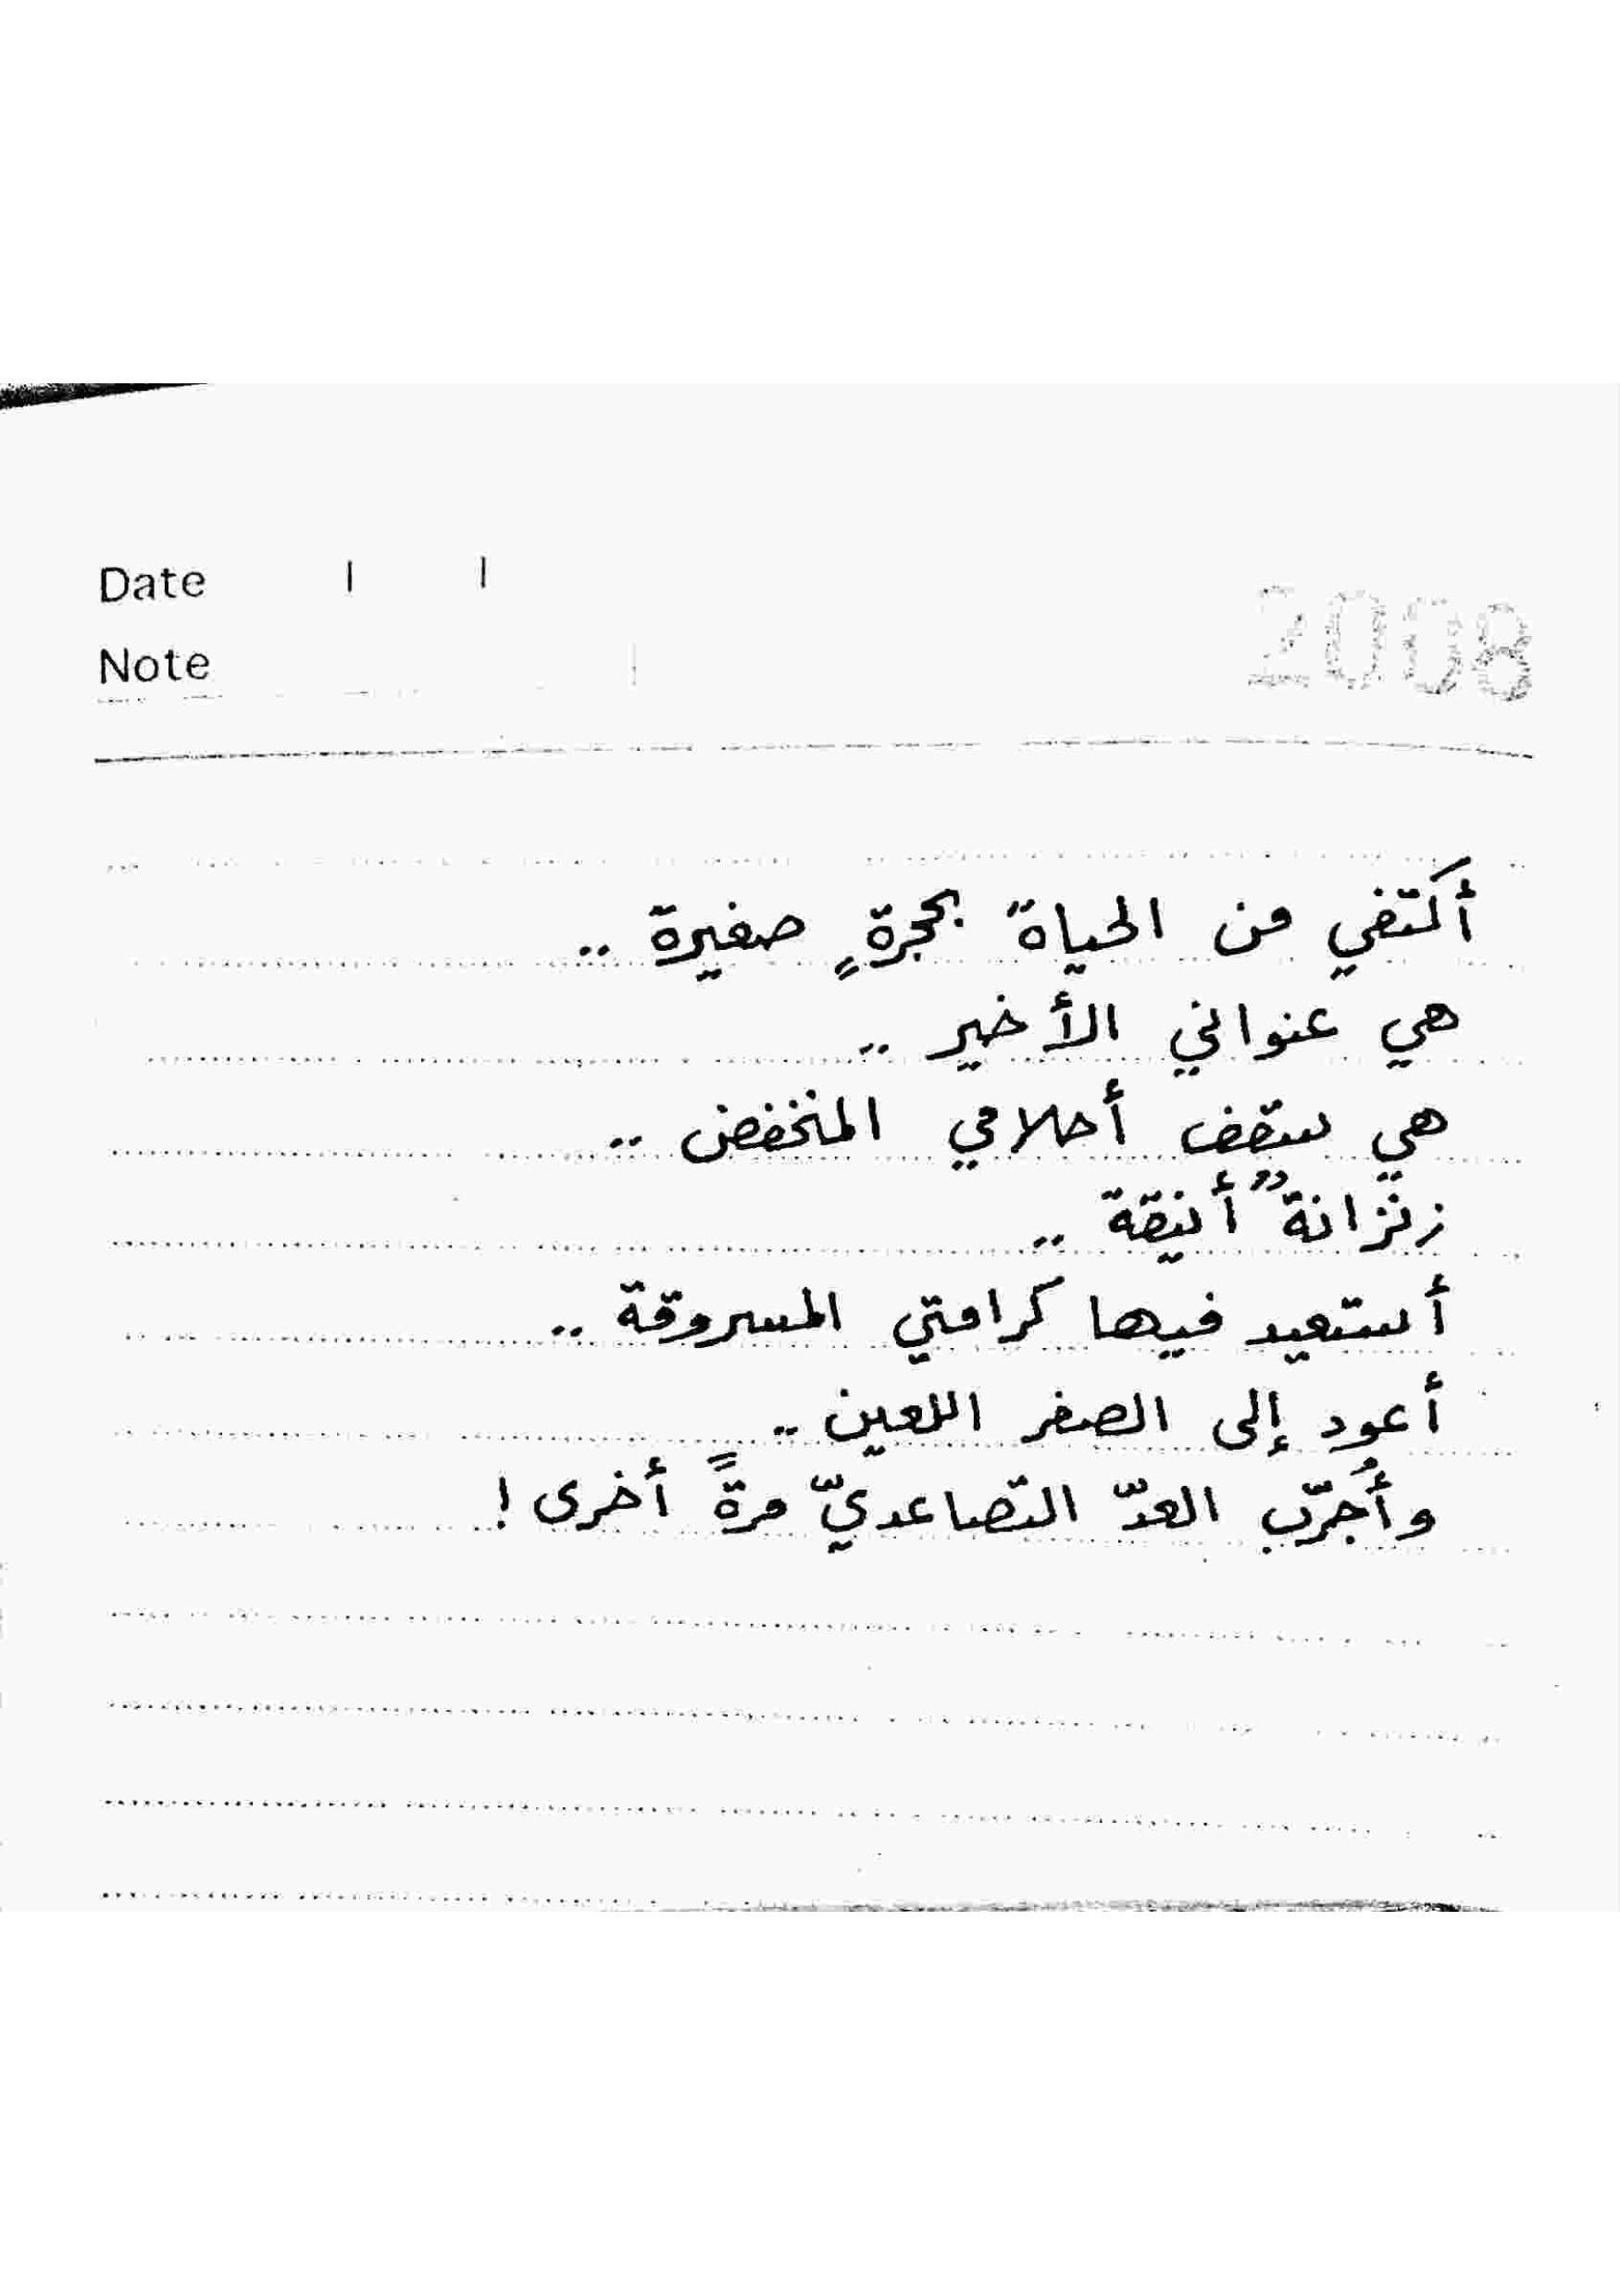 Date / /
Note
2008
أكتفي من الحياة بحجرةٍ صغيرة ..
هي عنواني الأخير ..
هي سقف أحلامي المنخفض ..
زنزانةٌ أنيقة ..
أستعيد فيها كرامتي المسروقة ..
أعود إلى الصفر اللعين ..
وأُجرّب العدّ التصاعديّ مرةً أخرى !